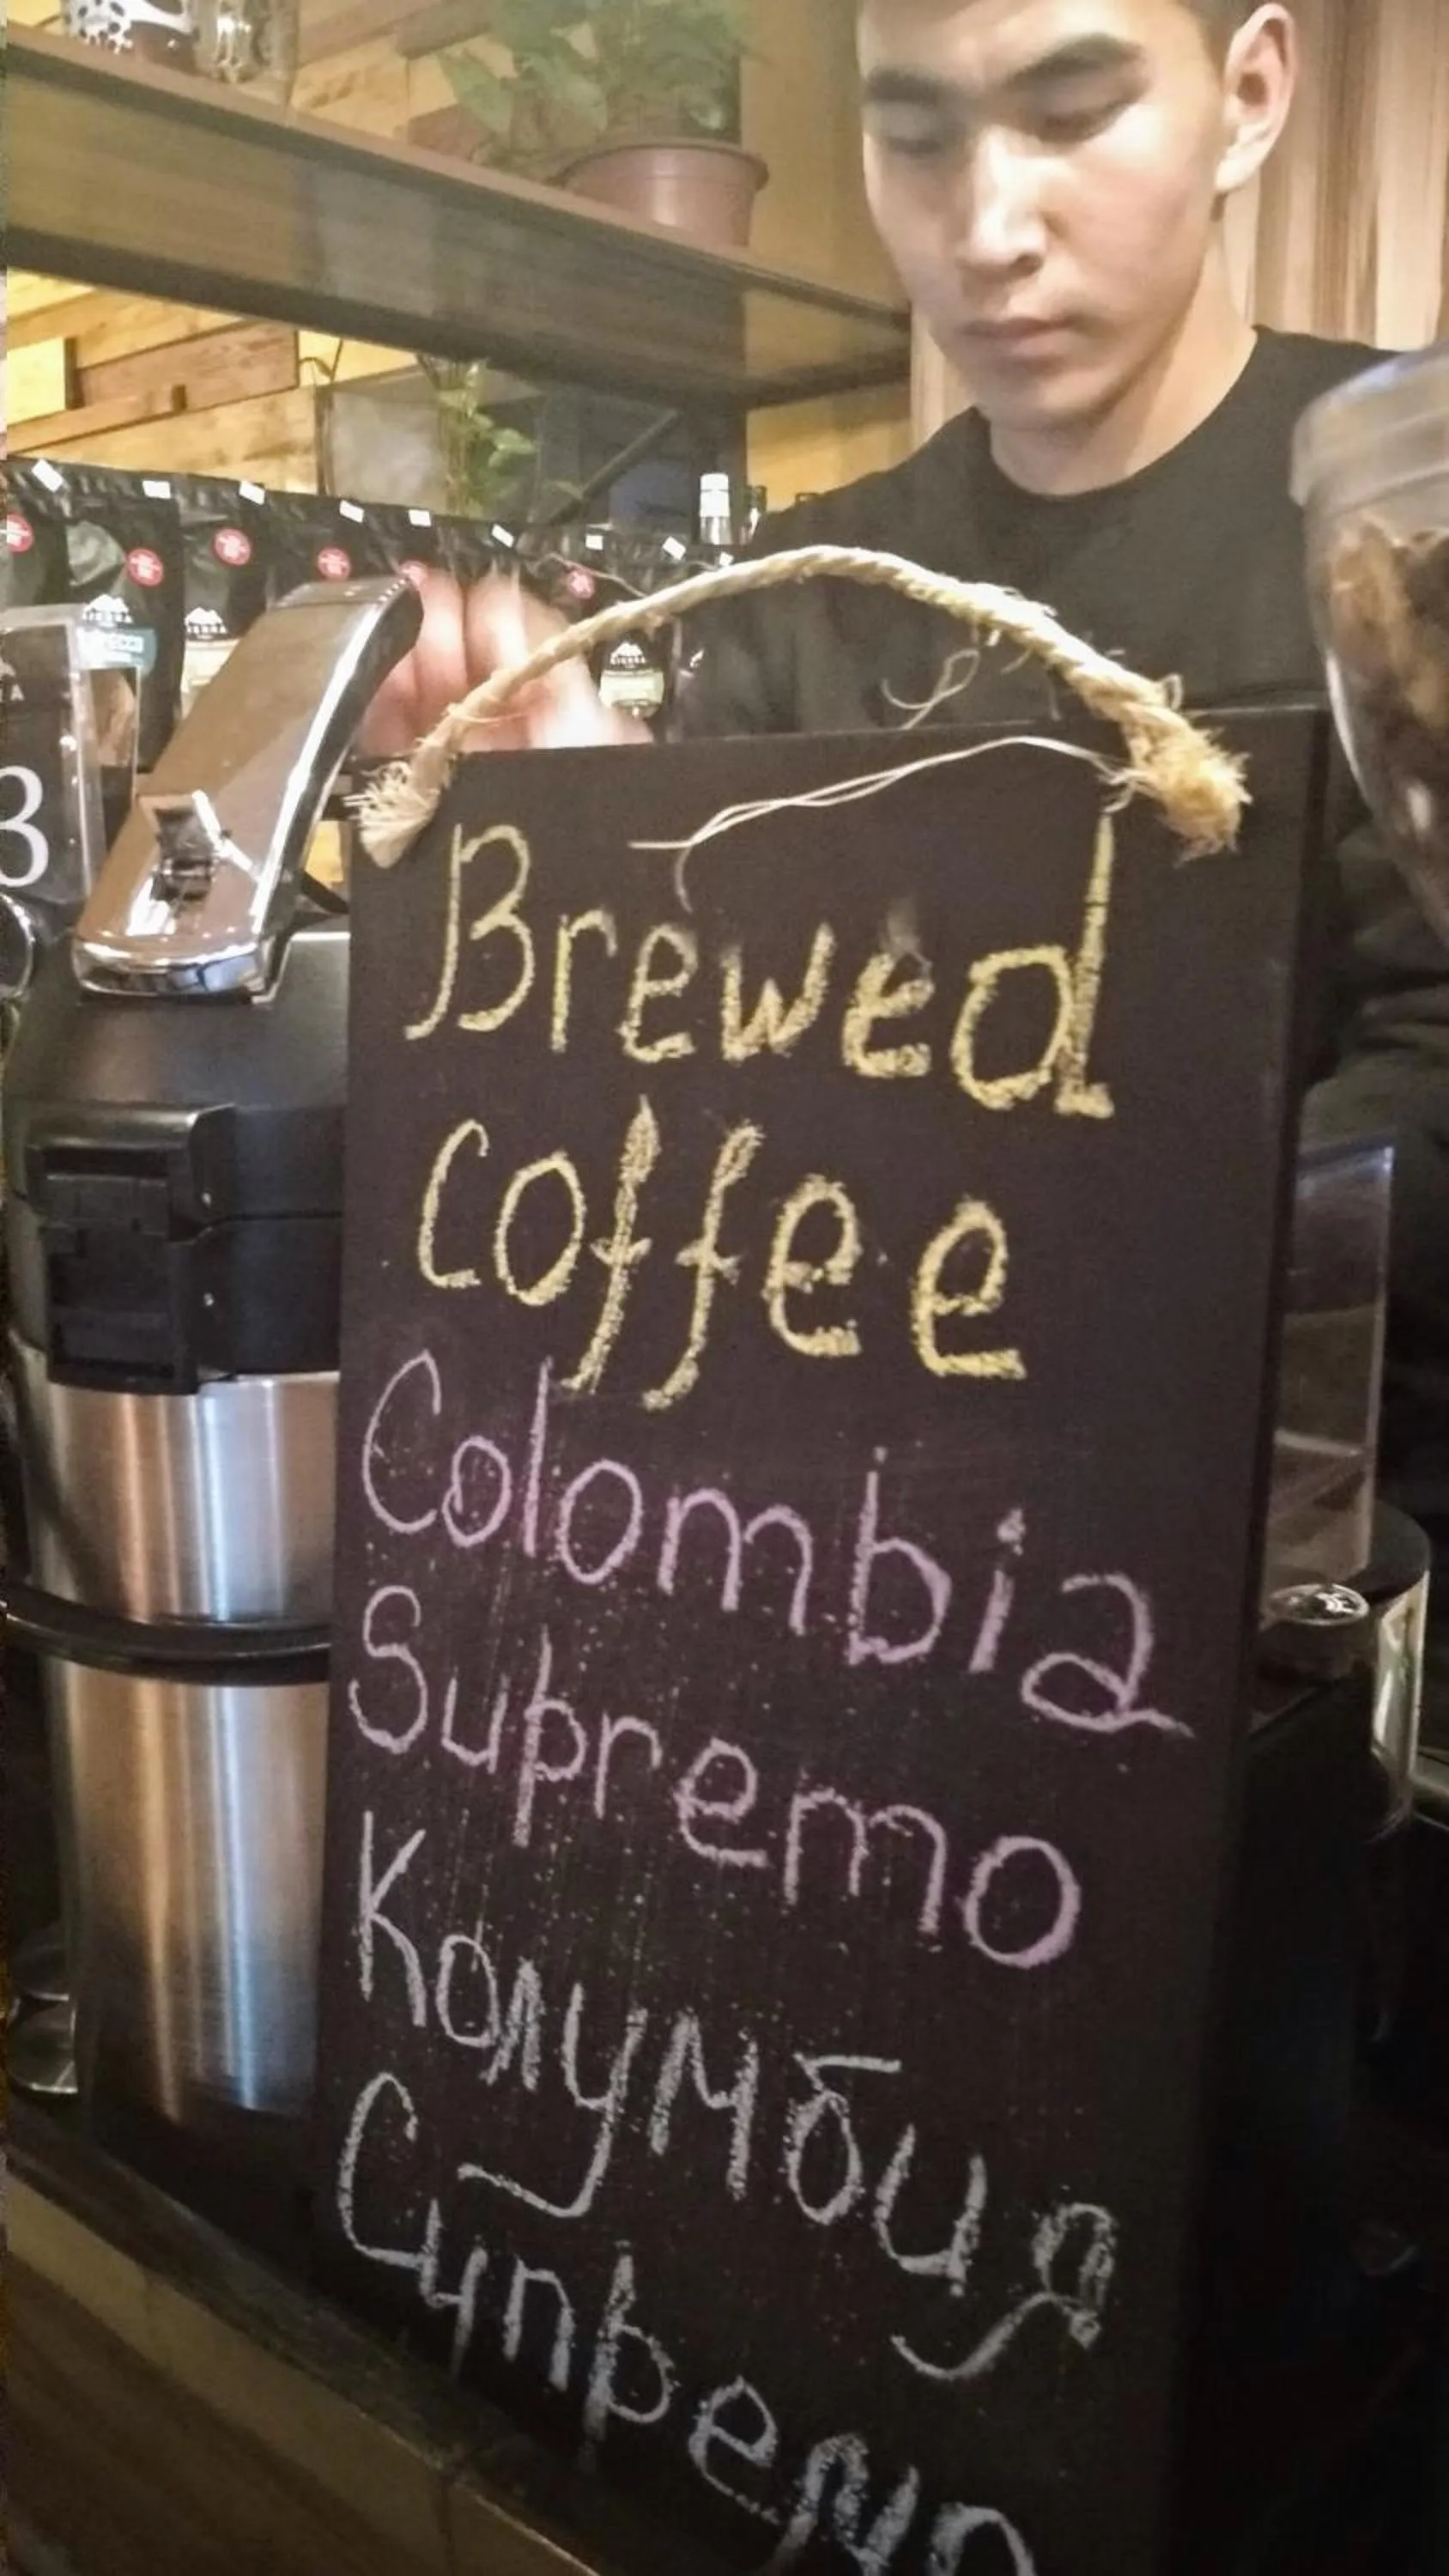 Brewed
Coffee
Colombia
Supremo
Колумбия
Супремо
SIERRA
SIERRA
SIERRA
3